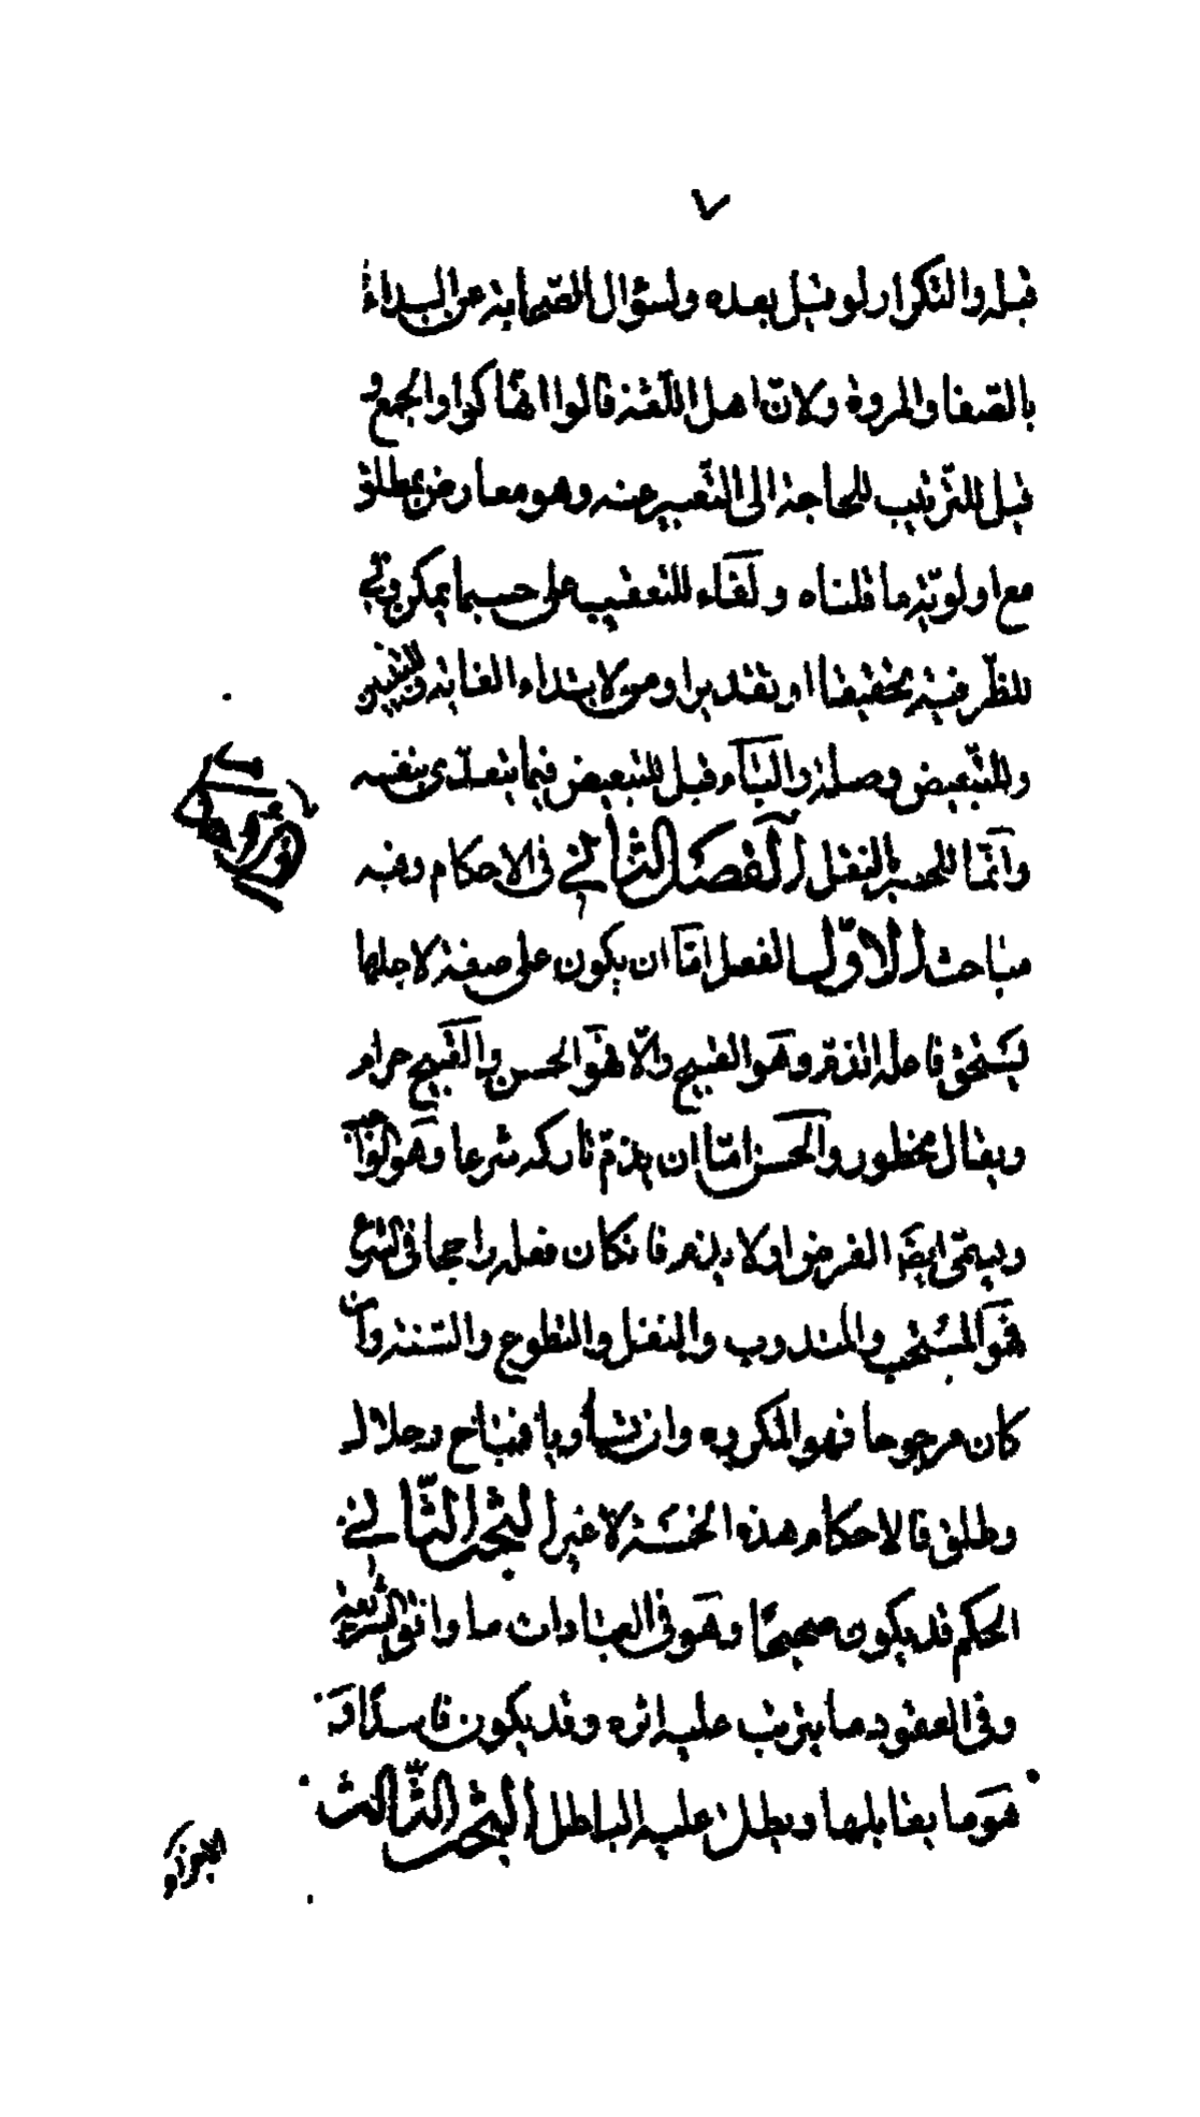 ٧
قبله والتكرار لو قيل بعده ولسؤال الصّحابة عن البداءة
بالصّفا والمروة ولانّ اهل اللّغة قالوا انها كوا والجمع و
قيل للتّرتيب للحاجة الى التّعبير عنه وهو معارض بمطلق
مع اولويّة ما قلناه والفاء للتعقيب على حسب ما يمكن وفي
للظّرفية تحقيقا او تقديرا ومن لابتداء الغاية وللتبيين
وللتّبعيض وصلة والباء قيل للتبعيض فيما يتعدّى بنفسه
وانّما للحصر بالنقل الفصل الثاني في الاحكام وفيه
مباحث الاوّل الفعل امّا ان يكون على صفة لاجلها
يستحق فاعله الذم وهو القبيح والّا فهو الحسن والقبيح حرام
ويقال محظور والحسن امّا ان يذمّ تاركه شرعا وهو الواجب
ويسمّى ايضا الفرض او لا يذم فان كان فعله راجحا في الشرع
فهو المستحب والمندوب والنفل والتطوع والسّنة وان
كان مرجوحا فهو المكروه وان تساويا فمباح وحلال
وطلق فالاحكام هذه الخمسة لا غير البحث الثّاني
الحكم قد يكون صحيحا وهو في العبادات ما وافق الشريعة
وفي العقود ما يترتب عليه اثره وقد يكون فاسدا و
هو ما يقابلها ويطلق عليه الباطل البحث الثّالث
الاجزاء